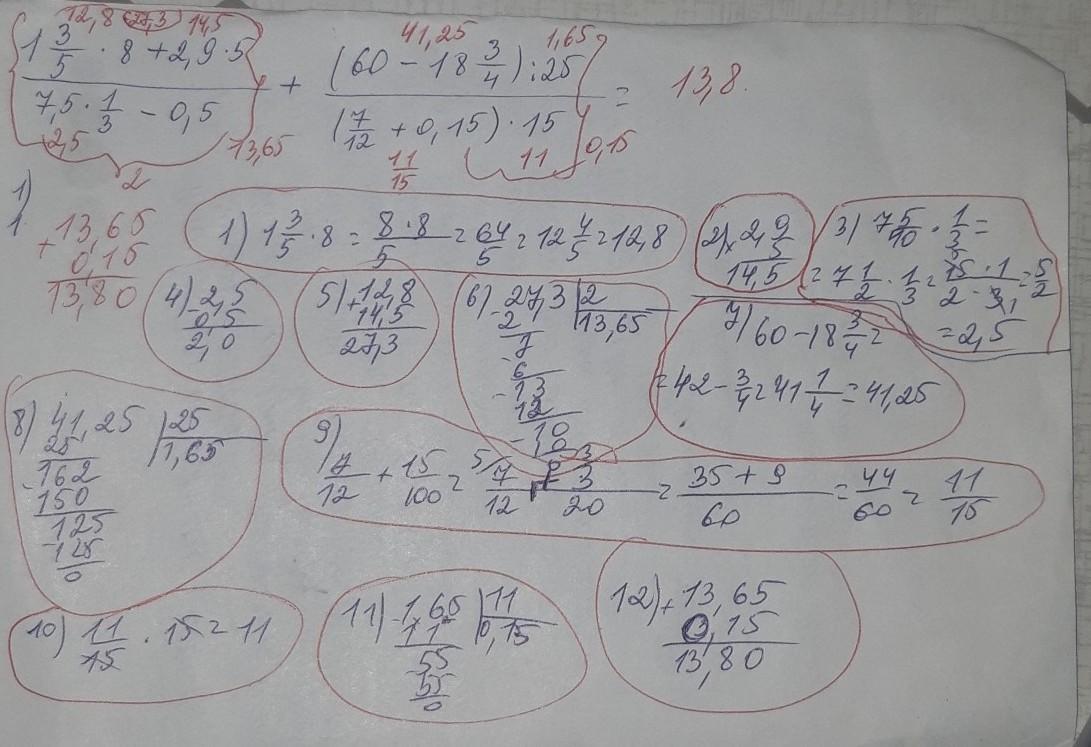 12,8 27,3 14,5 41,25 1,65
1 3/5 · 8 + 2,9 · 5 (60 - 18 3/4) : 25
+ = 13,8.
7,5 · 1/3 - 0,5 (7/12 + 0,15) · 15
2,5 13,65 11/15 11 0,15
2
1)
13,65
+ 0,15
13,80
1) 1 3/5 · 8 = 8 · 8/5 = 64/5 = 12 4/5 = 12,8
2) × 2,9
5
14,5
3) 7 5/10 · 1/3 =
= 7 1/2 · 1/3 = 15 · 1/2 · 3, = 5/2
= 2,5
4) - 2,5
0,5
2,0
5) + 12,8
14,5
27,3
6) - 27,3 | 2
2 13,65
7
6
- 13
12
- 10
10
0
7) 60 - 18 3/4 =
= 42 - 3/4 = 41 1/4 = 41,25
8) 41,25 | 25
25 1,65
162
- 150
125
- 125
0
9) 7/12 + 15/100 = 5/ 7/12 + 3/ 3/20 = 35 + 9/60 = 44/60 = 11/15
10) 11/15 · 15 = 11
11) - 1,65 | 11
11 0,15
55
55
0
12) + 13,65
0,15
13,80